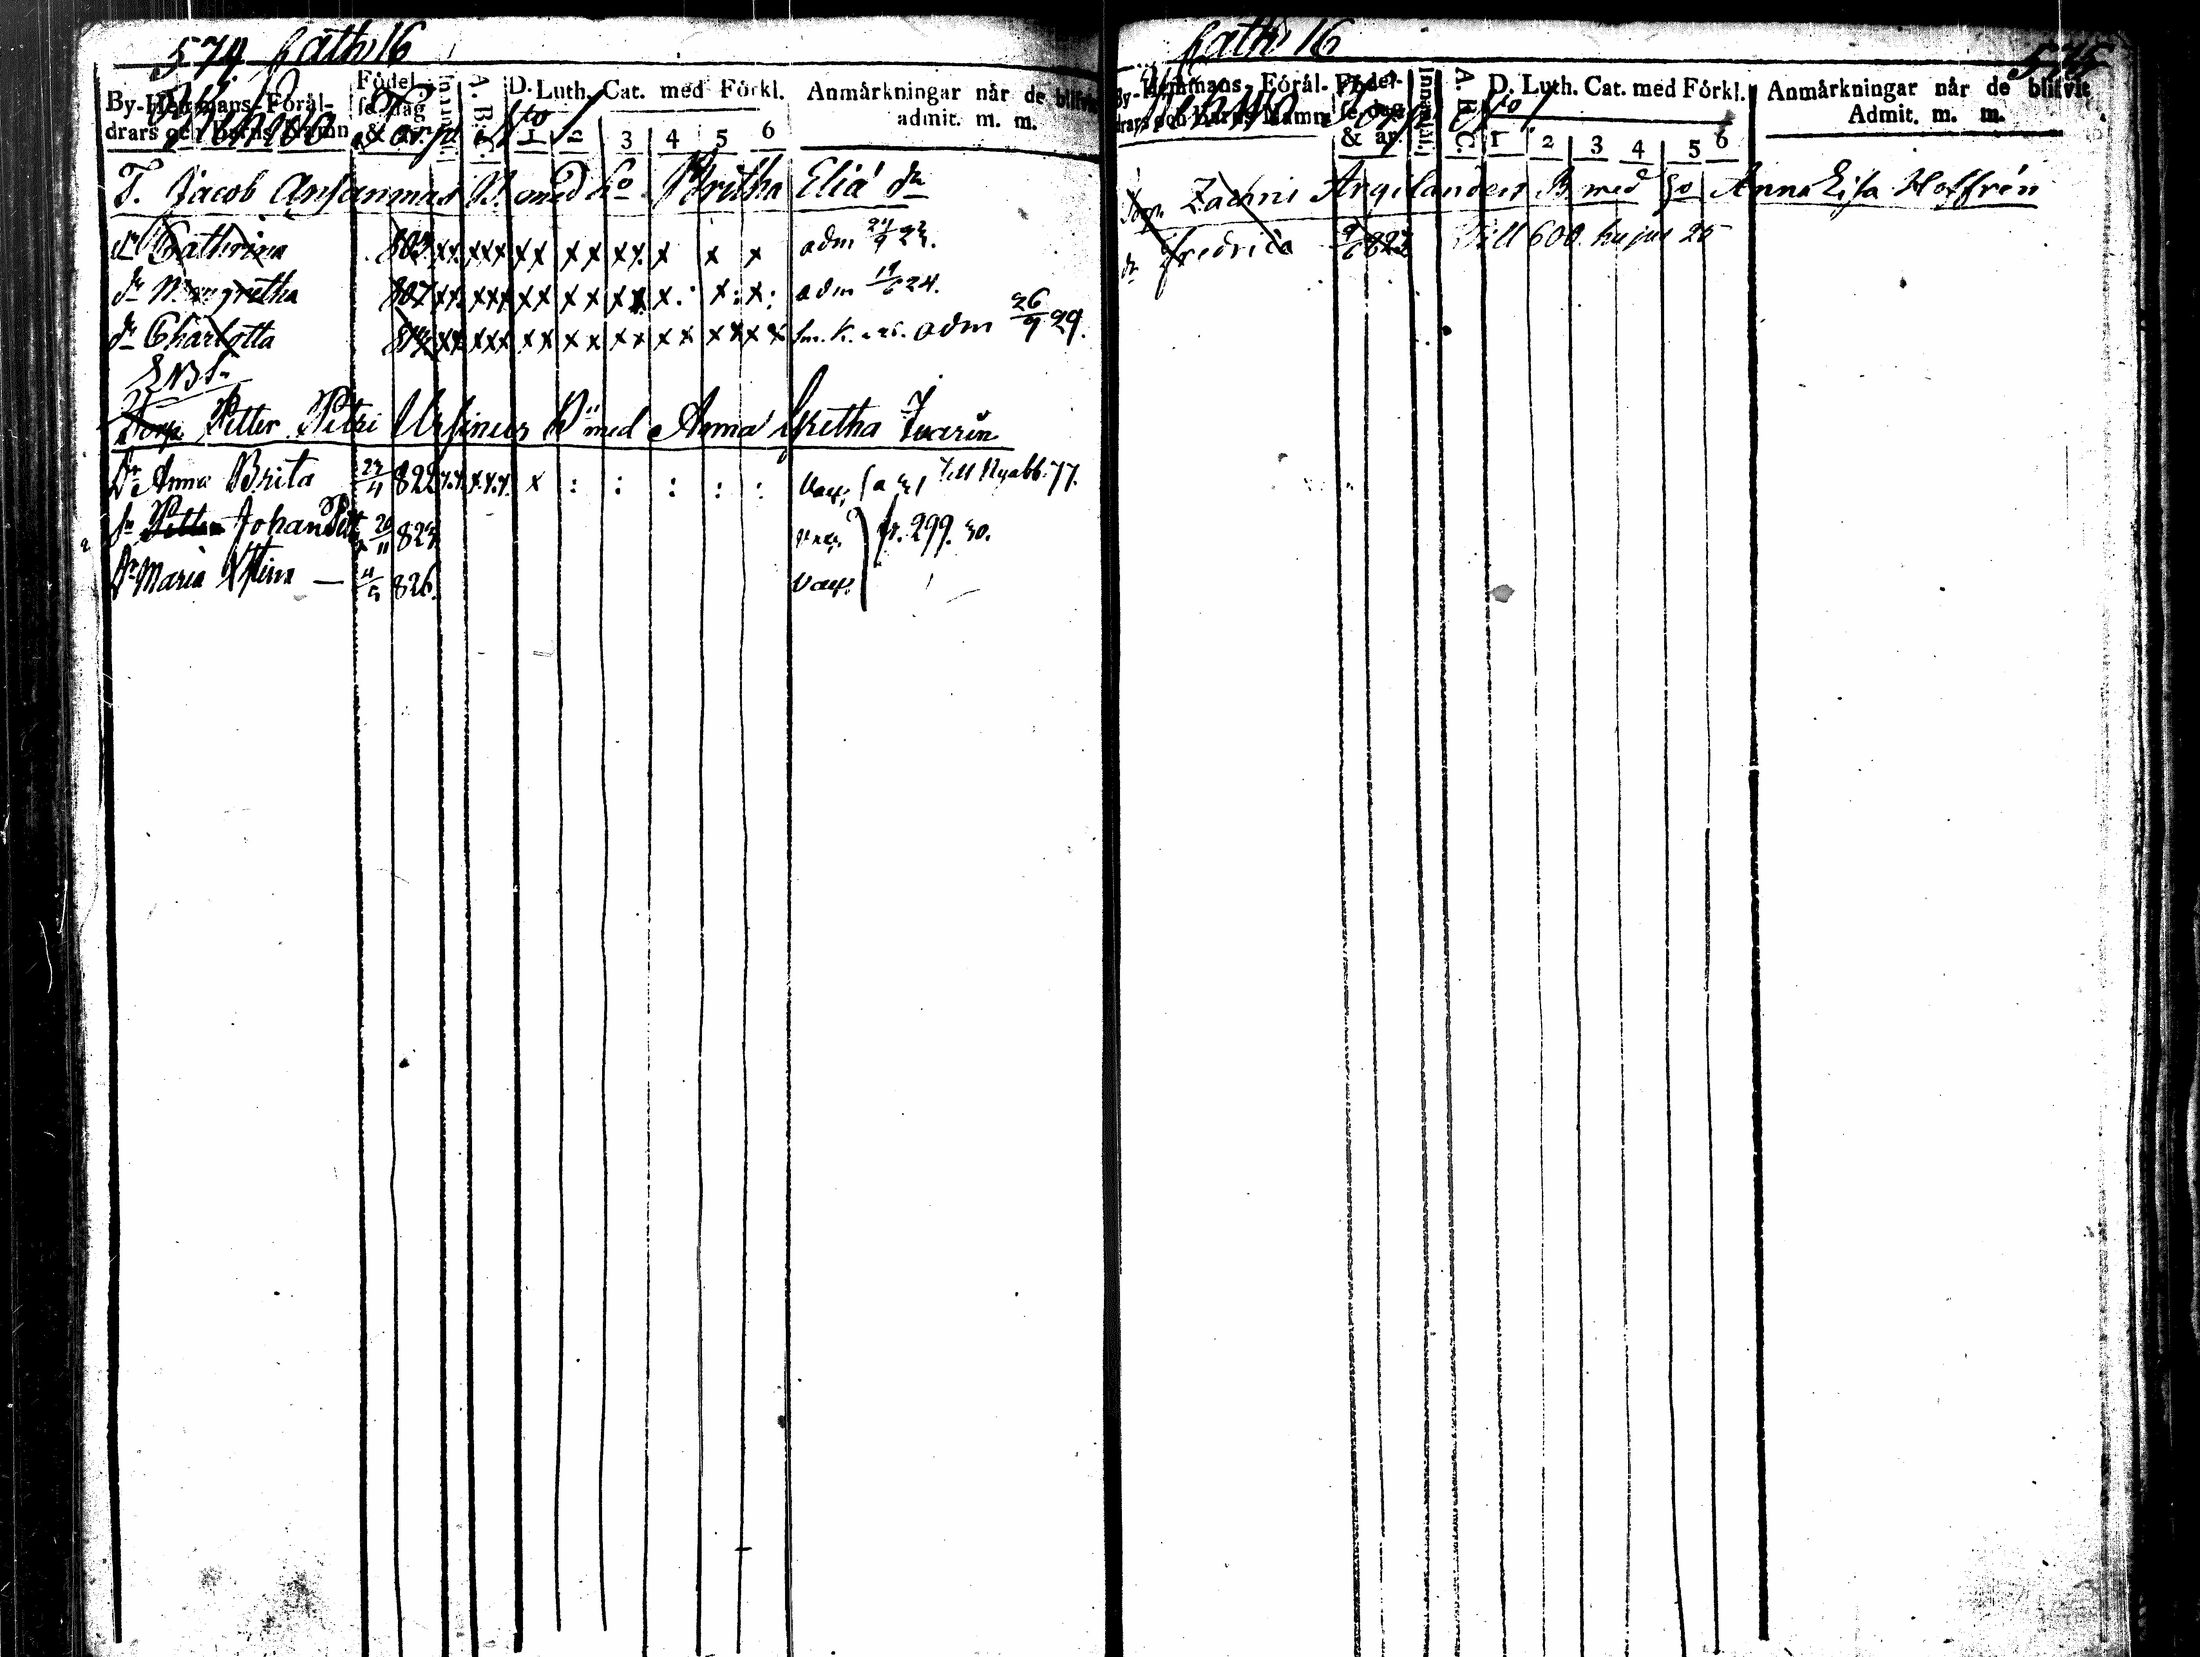 574
Cath 16
By-Hemmans-Föräl-
drars och Barns Namn
Födel
se dag
& år
A. B. C.
D. Luth. Cat. med Förkl.
1 2 3 4 5 6
Anmärkningar når de blifvit
admit. m. m.
T. Jacob Ansanmas B. med ho Britha Elia dr
dr Cathrina 803. xx xxx xx xx xx x x x adm 24/9 23.
dr Margretha 807 xx xxx xx xx xx x. x: x: adm 19/6 24.
dr Charlotta xx xxx xx xx xx xx xx xx adm 26/9 29.
Torp. Petter Petri Ursinus B. med Anna Gretha Ivarin
Dr Anna Brita 822 x.x. x.x.x. x : : : : : Vacc. Till Nyabb. 77.
Sn Petter Johan Pett 20/11 823 vacc. fr. 299. 30.
Dr Maria Stina — 826. Vacc.
Cath 16
575
By-Hemmans-Föräl-
drars och Barns Namn
Födel-
se dag
& år
Innanläs.
A. B. C.
D. Luth. Cat. med Förkl.
1 2 3 4 5 6
Anmärkningar når de blifvit
Admit. m. m.
Torp. Zachris Argilander B. med ho Anna Lisa Hoffrén
dr Fredrica Till 600 hujus 25